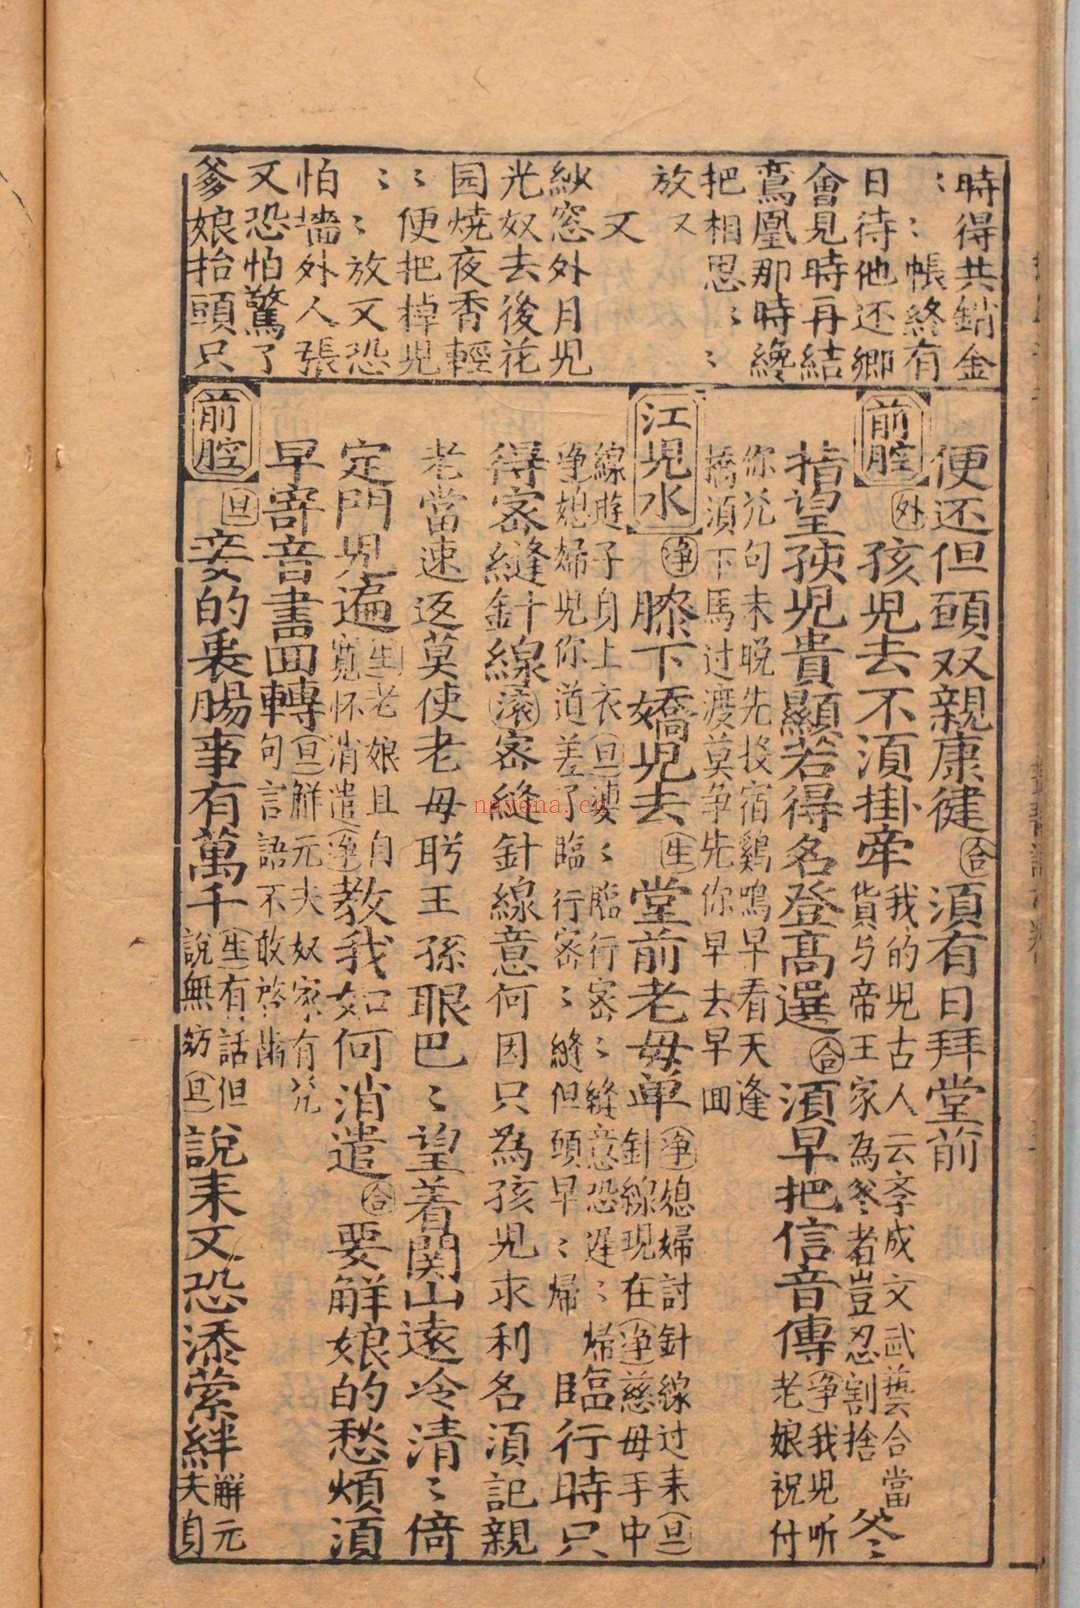 時得共銷金
〻〻帳終有
日待他还卿
會見時再結
鸞凰那時纔
把相思〻〻
放又
又
紗窓外月児
光奴去後花
园燒夜香輕
〻便把棹児
〻〻放又恐
怕墻外人張
又恐怕驚了
爹娘抬頭只
便还但願双親康健（合）須有日拜堂前
前腔
（外）孩児去不須掛牽
我的児古人云斈成文武藝合當
貨与帝王家為爹者豈忍割捨
爹〻
指望孩児貴顯若得名登髙選（合）須早把信音傳
（净）我児听
老娘祝付
你㡬句未晚先投宿鷄鳴早看天逢
橋須下馬过渡莫争先你早去早回
江児水
（净）膝下嬌児去（生）堂前老母单
（净）媳婦討針線过来（旦）
針線現在（净）慈母手中
線遊子身上衣（旦）婆〻臨行宻〻縫意恐遲〻歸
（净）媳婦児你道差了臨行宻〻縫但願早〻歸
臨行時只
得宻縫針線（滚）宻縫針線意何因只為孩児求利名須記親
老當速返莫使老母盻王孫眼巴〻望着関山遠冷清〻倚
定門児遍
（生）老娘且自
寬怀消遣（净）
教我如何消遣（合）要解娘的愁煩須
早寄音書回轉
（旦）解元夫奴家有㡬
句言語不敢啓齒
前腔
（旦）妾的衷腸事有萬千
（生）有話但
說無妨（旦）
說来又恐添縈絆
解元
夫自
nayona.cn